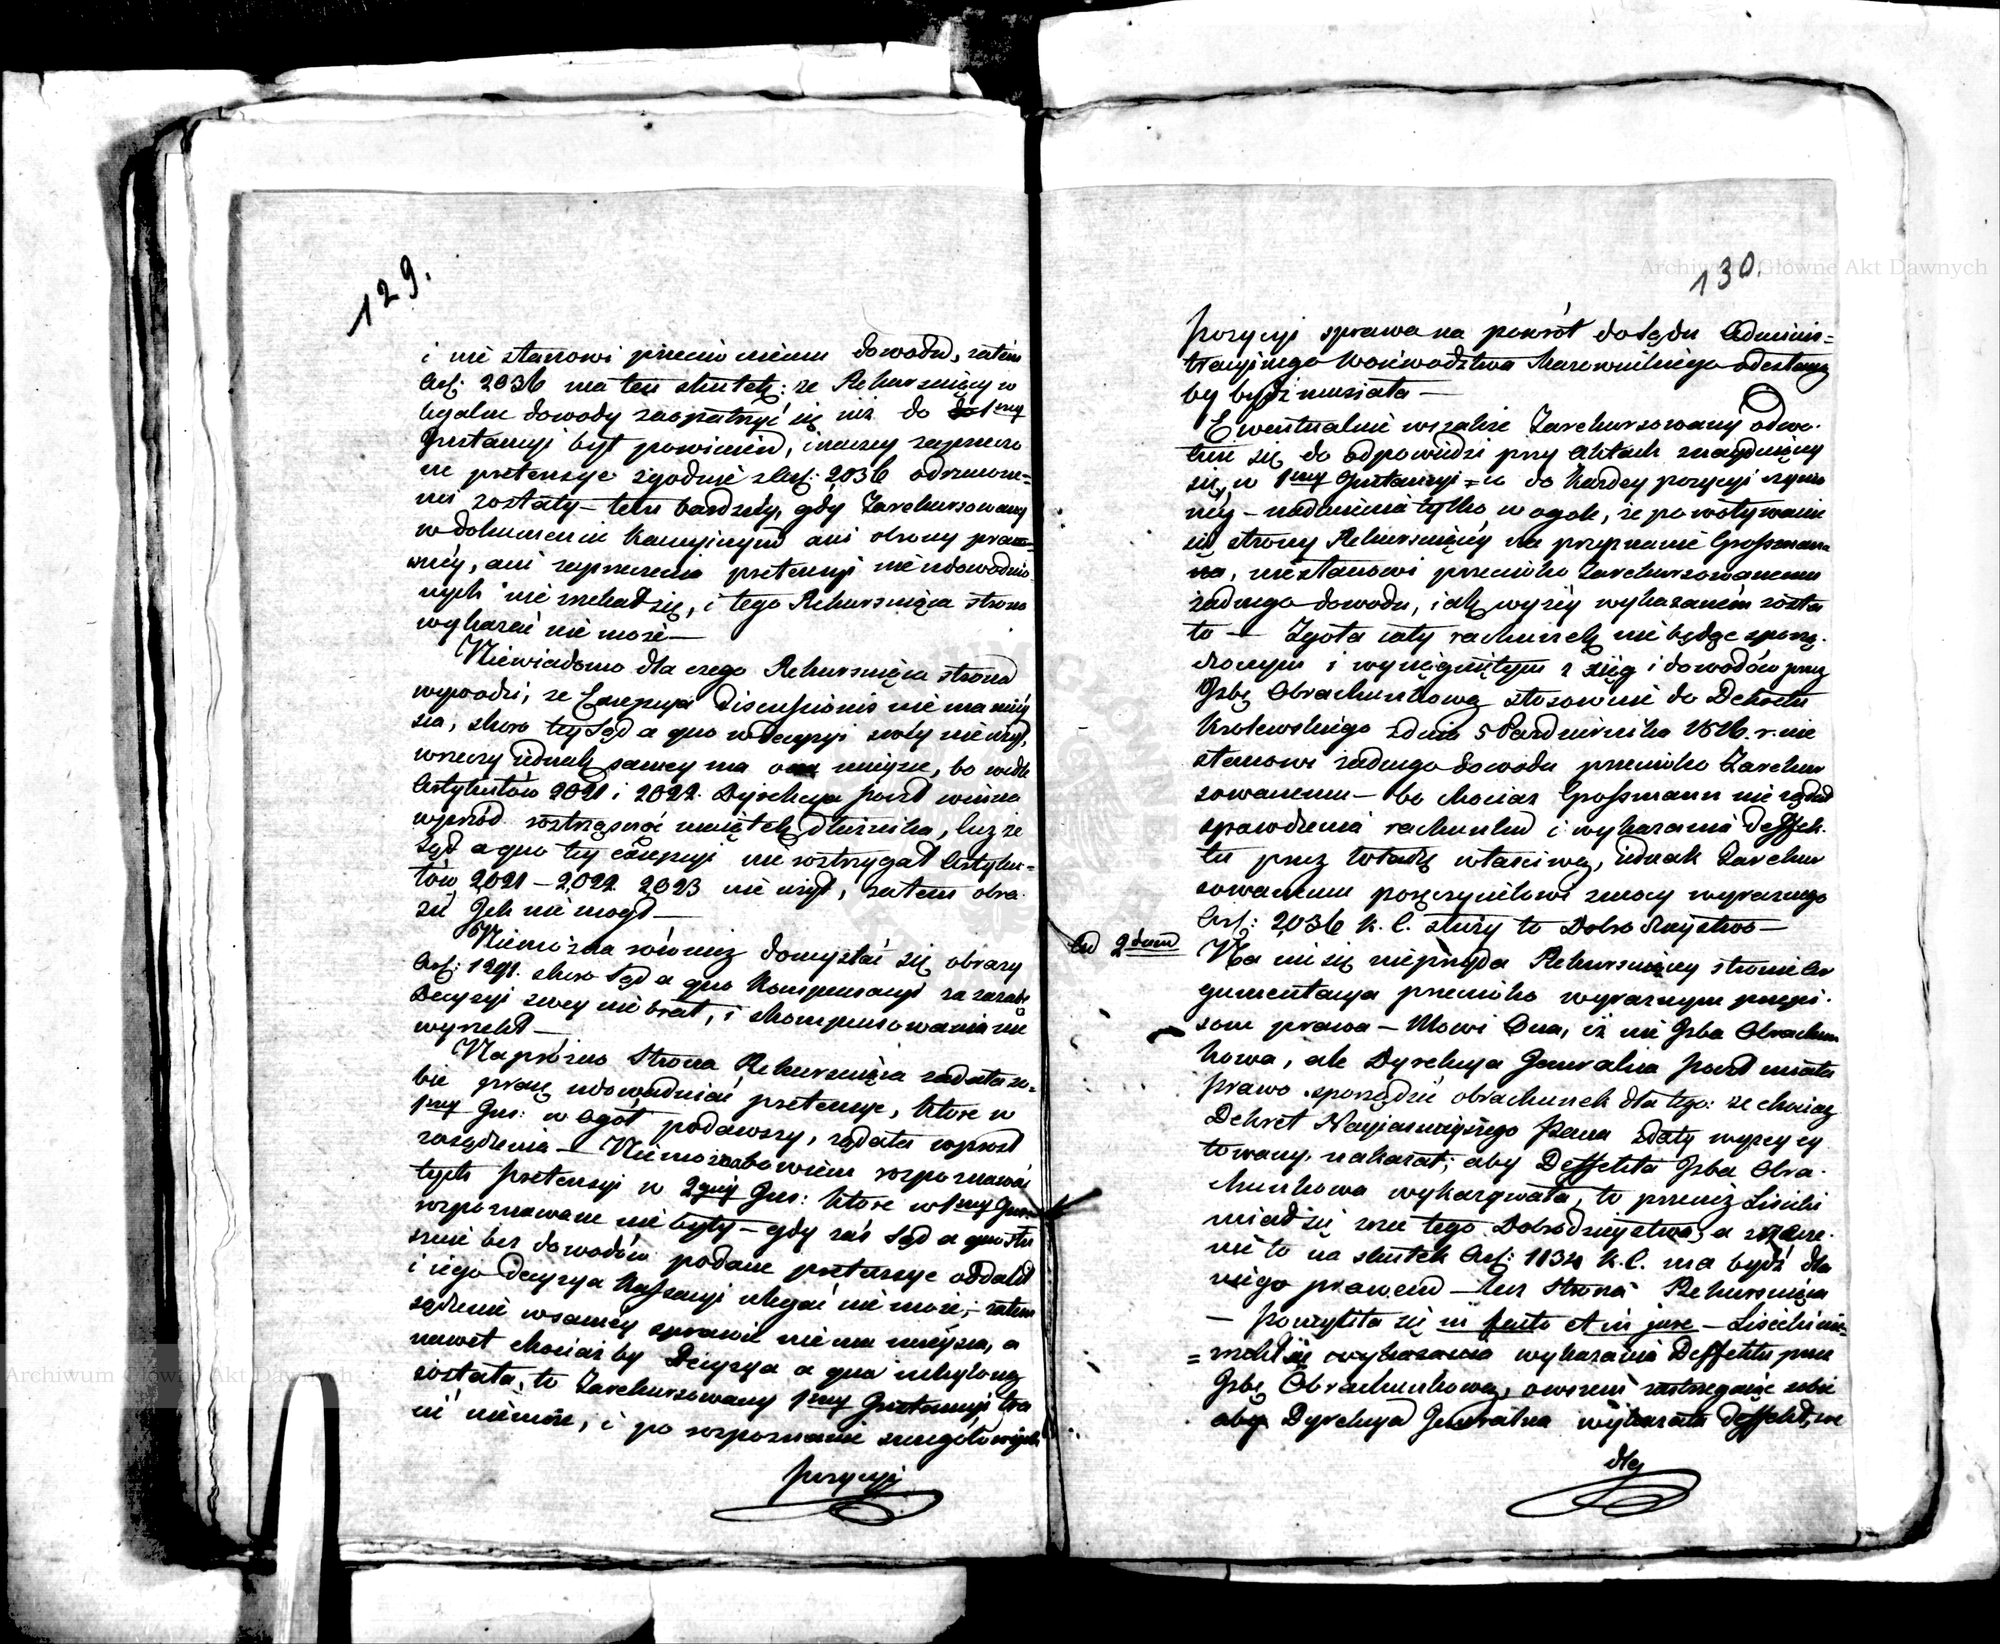 129.
i nie stanowi przeciw niemu dowodu, zatém
Art: 2036 ma ten skutek: że Rekursuiący w
legalne dowody zaopatrzyć się iuż do 1méy
Instancyi był powinien, inaczey zaprzeczo
ne pretensye zgodnie z Art: 2036 odrzuco=
ne zostały – tem bardziéy, gdy Zarekursowany
w dokumencie kaucyinym ani obrony praw=
néy, ani zaprzeczenia pretensyi nieudowodnio
nych nie zrzekał się, i tego Rekursuiąca strona
wykazać nie może –
Niewiadomo dla czego Rekursuiąca strona
wywodzi, że Excepcya Discussionis nie ma miey
sca, skoro téy Sąd a quo w decyzyi swéy nie użył,
w rzeczy iednak samey ma ona mieysce, bo wedle
Artykułów 2021 i 2022. Dyrekcya Poczt winna
wprzód roztrząsnąć maiątek dłużnika, lecz że
Sąd a quo téy excepcyi nie roztrzygał Artyku=
łów 2021 – 2022 2023 nie użył, zatem obra
zić Ich nie mógł –
Niemożna również domyślać się obrazy
Art: 1291. skoro Sąd a quo kompensacyi za zasadę
Decyzyi swey nie brał, i skompensowania nie
wyrzekł –
Napróżno Strona Rekursuiąca zadała so=
bie pracę udowadniać pretensye, które w
1méy Ins: w ogół podawszy, żądała wprost
zasądzenia – Niemożna bowiem rozpoznawać
tych pretensyi w 2giéy Ins: które w 1méy Ins
rozpoznawane nie były – gdy zaś Sąd a quo słu
sznie bez dowodów podane pretensye oddalił
i iego decyzya kassacyi ulegać nie może, – zatem
sądzenie w saméy sprawie nie ma mieysca, a
nawet chociażby Decyzya a quo uchyloną
została, to Zarekursowany 1méy Instancyi tra
cić niemoże, i po rozpoznanie szczegółowych
pozycyi
130.
pozycyi sprawa na powrót do Sądu Adminis=
tracyinego Woiewództwa Mazowieckiego odesłaną
by bydź musiała –
Ewentualnie wszakże Zarekursowany odwo=
łuie się do odpowiedzi przy Aktach znayduiącey
się, w 1méy Instancyi = co do każdey pozycyi czynio
néy – nadmienia tylko, w ogóle, że powoływanie
się strony Rekursuiącéy na przyznanie Grossman
na, nie stanowi przeciwko Zarekursowanemu
żadnego dowodu, iak wyżéy wykazaném zosta
ło – Zgoła cały rachunek nie będąc sporzą=
dzonym i wyciągniętym z xiąg i dowodów przez
Izbę Obrachunkową stosownie do Dekretu
Królewskiego z dnia 5 Października 1816. r. nie
stanowi żadnego dowodu przeciwko Zarekur
sowanemu – bo chociaż Grossmann nie żądał
sprawdzenia rachunku i wykazania Deffek=
tu przez władzę właściwą, iednak Zarekur
sowanemu poręczycielowi z mocy wyraźnego
Art: 2036 K. C. służy to Dobrodzieystwo –
Ad 2dum Na nic się nieprzyda Rekursuiącey stronie Ar
gumentacya przeciwko wyraźnym przepi=
som prawa – Mówi Ona, iż nie Izba Obrachun
kowa, ale Dyrekcya Generalna Poczt miała
prawo sporządzić obrachunek dla tego: że chociaż
Dekret Nayiaśnieyszego Pana zdaty wyżéy cy
towany, nakazał, aby Deffekta Izba Obra=
chunkowa wykazywała, to przecież Lisicki
miał się zrzec tego Dobrodzieystwa, a zrzecze=
nie to na skutek Art: 1134 K. C. ma bydź dla
niego prawem – lecz Strona Rekursuiąca
– pomyliła się in facto et in jure – Lisicki nie=
= zrzekł się wykazania Deffektu przez
Izbę Obrachunkową, owszem zastrzegaiąc sobie
aby Dyrekcya Generalna wykazała deffekt, we
dłg